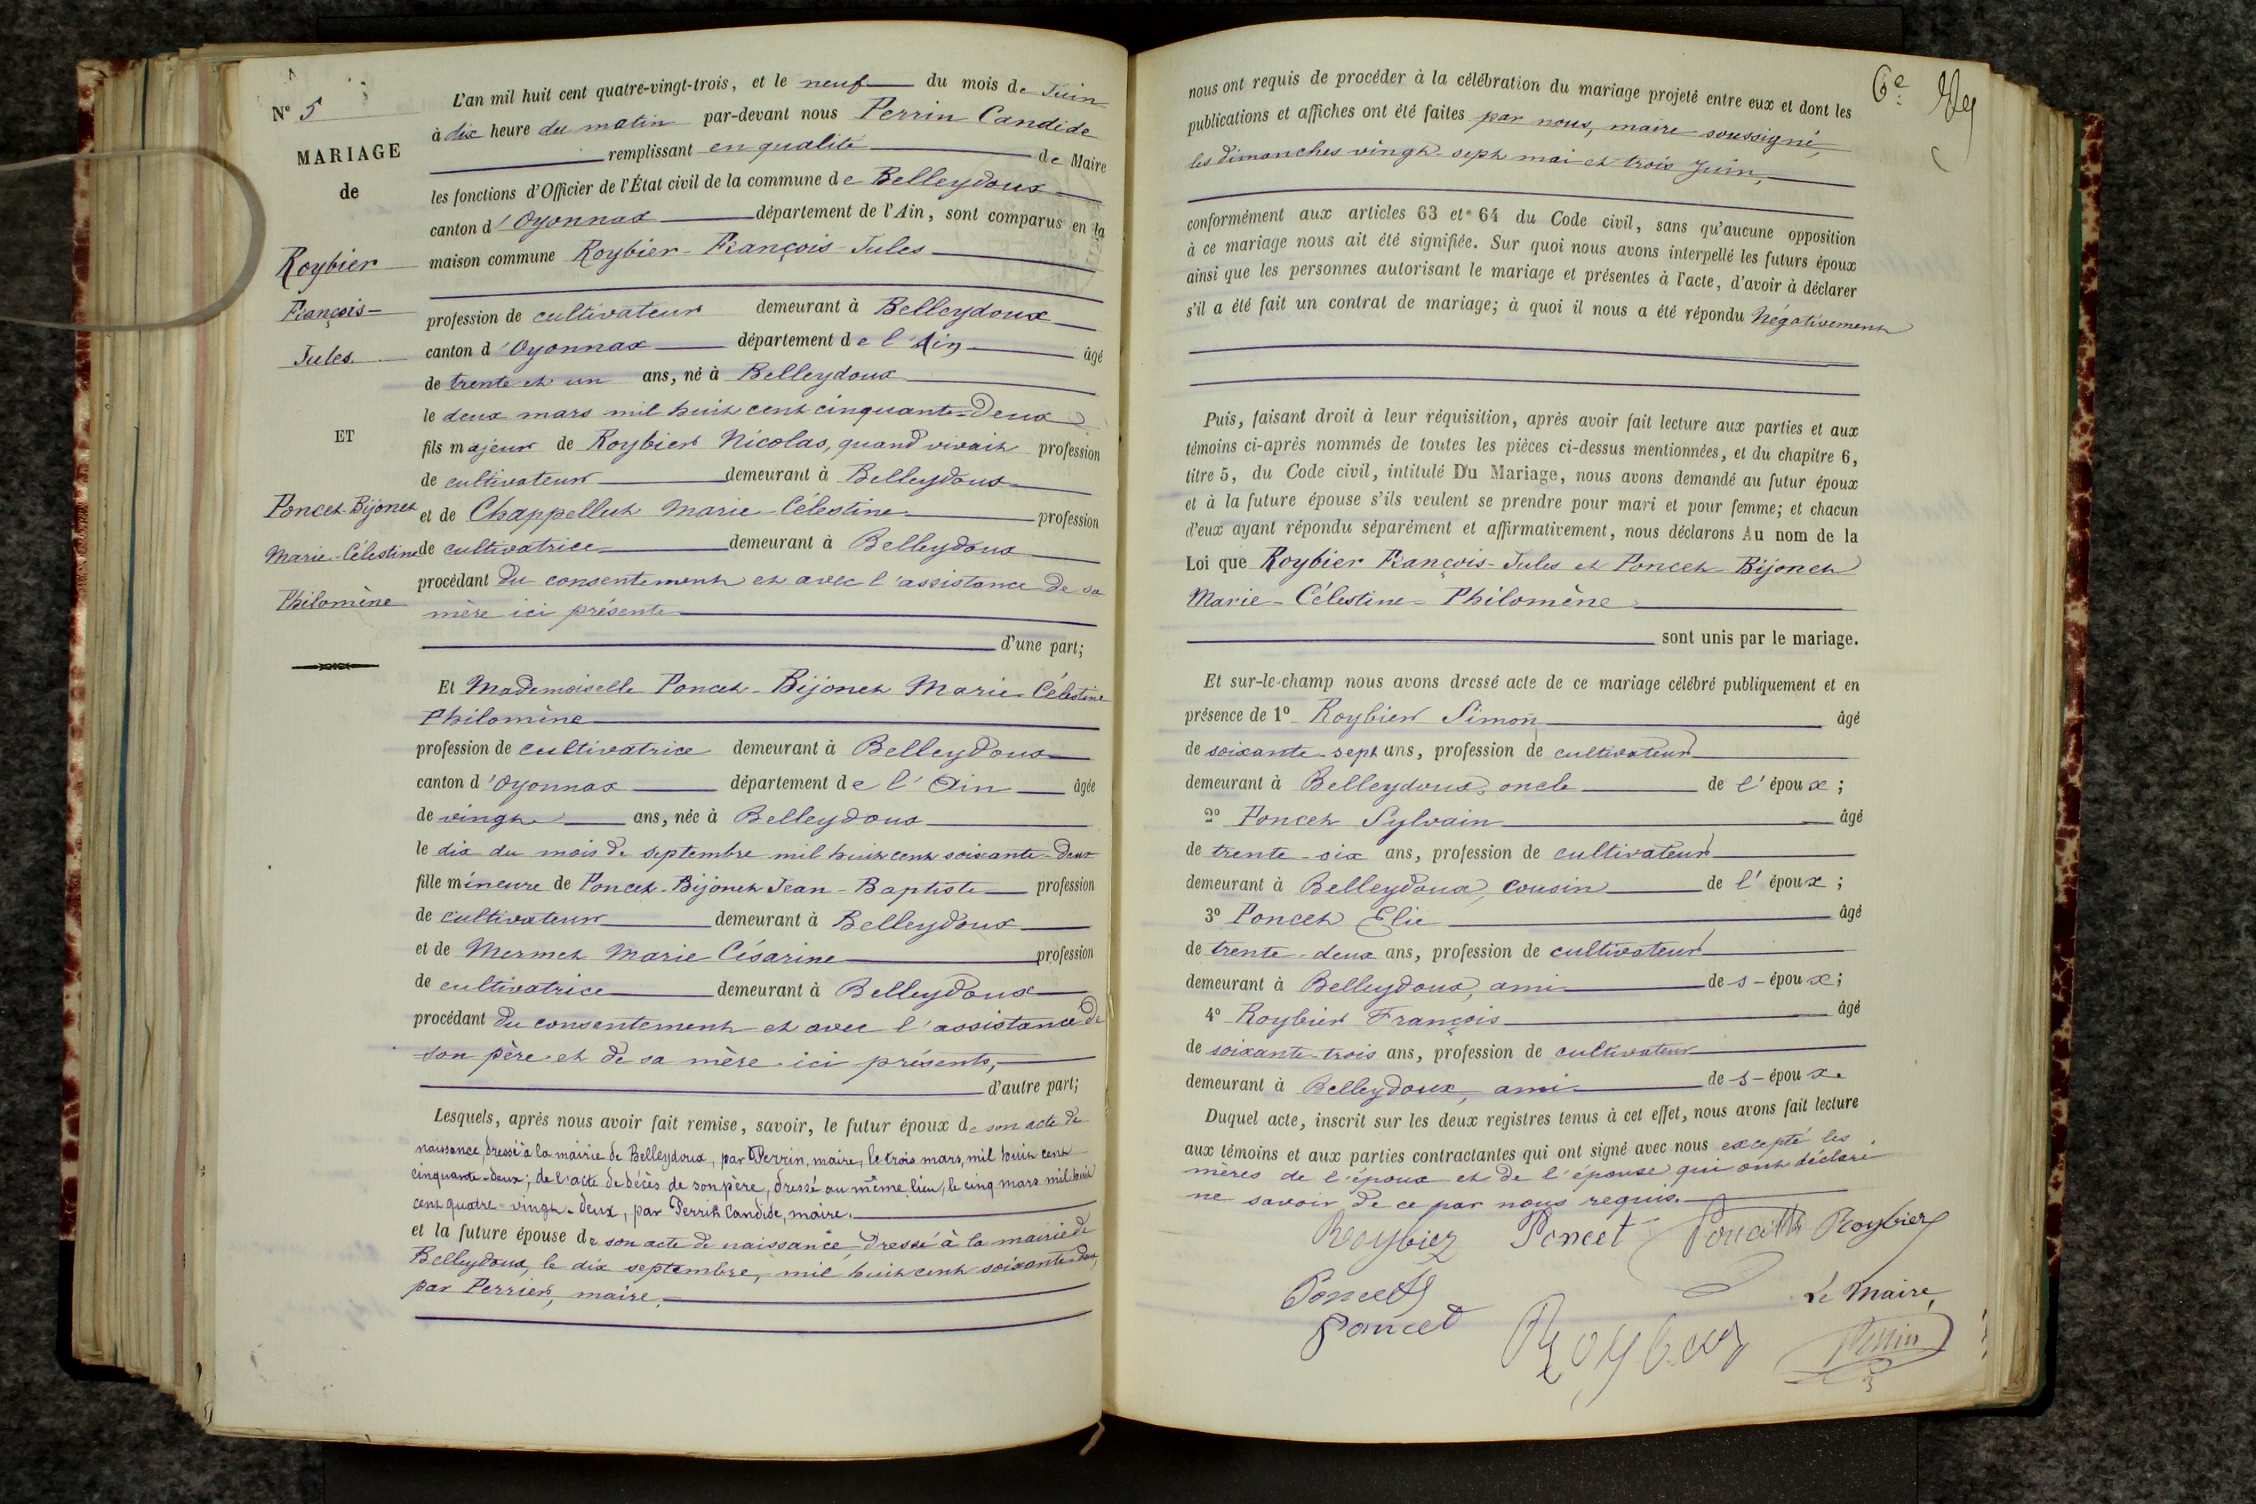 N° 5
MARIAGE
de
Roybier
François-
Jules
ET
Poncet-Bijonet
Marie-Célestine
Philomène
L'an mil huit cent quatre-vingt-trois, et le neuf du mois de Juin
à dix heure du matin par-devant nous Perrin Candide
remplissant en qualité de Maire
les fonctions d'Officier de l'État civil de la commune de Belleydoux
canton d'Oyonnax département de l'Ain, sont comparus en la
maison commune Roybier-François-Jules
profession de cultivateur demeurant à Belleydoux
canton d'Oyonnax département de l'Ain âgé
de trente et un ans, né à Belleydoux
le deux mars mil huit cent cinquante-deux
fils majeur de Roybier Nicolas, quand vivait profession
de cultivateur demeurant à Belleydoux
et de Chappellut Marie-Célestine profession
de cultivatrice demeurant à Belleydoux
procédant du consentement et avec l'assistance de sa
mère ici présente
d'une part;
Et Mademoiselle Poncet-Bijonet Marie-Célestine
Philomène
profession de cultivatrice demeurant à Belleydoux
canton d'Oyonnax département de l'Ain âgée
de vingt ans, née à Belleydoux
le dix du mois de septembre mil huit cent soixante-deux
fille mineure de Poncet-Bijonet Jean-Baptiste profession
de cultivateur demeurant à Belleydoux
et de Mermet Marie Césarine profession
de cultivatrice demeurant à Belleydoux
procédant du consentement et avec l'assistance de
son père et de sa mère ici présents,
d'autre part;
Lesquels, après nous avoir fait remise, savoir, le futur époux de son acte de
naissance, dressé à la mairie de Belleydoux, par Perrin, maire, le trois mars, mil huit cent
cinquante-deux; de l'acte de décès de son père, dressé au même lieu, le cinq mars mil huit
cent quatre-vingt-deux, par Perrin Candide, maire.
et la future épouse de son acte de naissance dressé à la mairie de
Belleydoux, le dix septembre, mil huit cent soixante-deux,
par Perrier, maire.
6e
nous ont requis de procéder à la célébration du mariage projeté entre eux et dont les
publications et affiches ont été faites par nous, maire soussigné,
les dimanches vingt-sept mai et trois Juin,
conformément aux articles 63 et 64 du Code civil, sans qu'aucune opposition
à ce mariage nous ait été signifiée. Sur quoi nous avons interpellé les futurs époux
ainsi que les personnes autorisant le mariage et présentes à l'acte, d'avoir à déclarer
s'il a été fait un contrat de mariage; à quoi il nous a été répondu Négativement
Puis, faisant droit à leur réquisition, après avoir fait lecture aux parties et aux
témoins ci-après nommés de toutes les pièces ci-dessus mentionnées, et du chapitre 6,
titre 5, du Code civil, intitulé Du Mariage, nous avons demandé au futur époux
et à la future épouse s'ils veulent se prendre pour mari et pour femme; et chacun
d'eux ayant répondu séparément et affirmativement, nous déclarons Au nom de la
Loi que Roybier François-Jules et Poncet Bijonet
Marie-Célestine-Philomène
sont unis par le mariage.
Et sur-le-champ nous avons dressé acte de ce mariage célébré publiquement et en
présence de 1° Roybier Simon âgé
de soixante-sept ans, profession de cultivateur
demeurant à Belleydoux, oncle de l'époux;
2° Poncet Sylvain âgé
de trente-six ans, profession de cultivateur
demeurant à Belleydoux, cousin de l'époux;
3° Poncet Elie âgé
de trente-deux ans, profession de cultivateur
demeurant à Belleydoux, ami de s-époux;
4° Roybier François âgé
de soixante-trois ans, profession de cultivateur
demeurant à Belleydoux, ami de s-époux.
Duquel acte, inscrit sur les deux registres tenus à cet effet, nous avons fait lecture
aux témoins et aux parties contractantes qui ont signé avec nous excepté les
mères de l'époux et de l'épouse qui ont déclaré
ne savoir de ce par nous requis.
Roybier Poncet Poncet Roybier
Poncet Le Maire,
Poncet Roybier Perrin